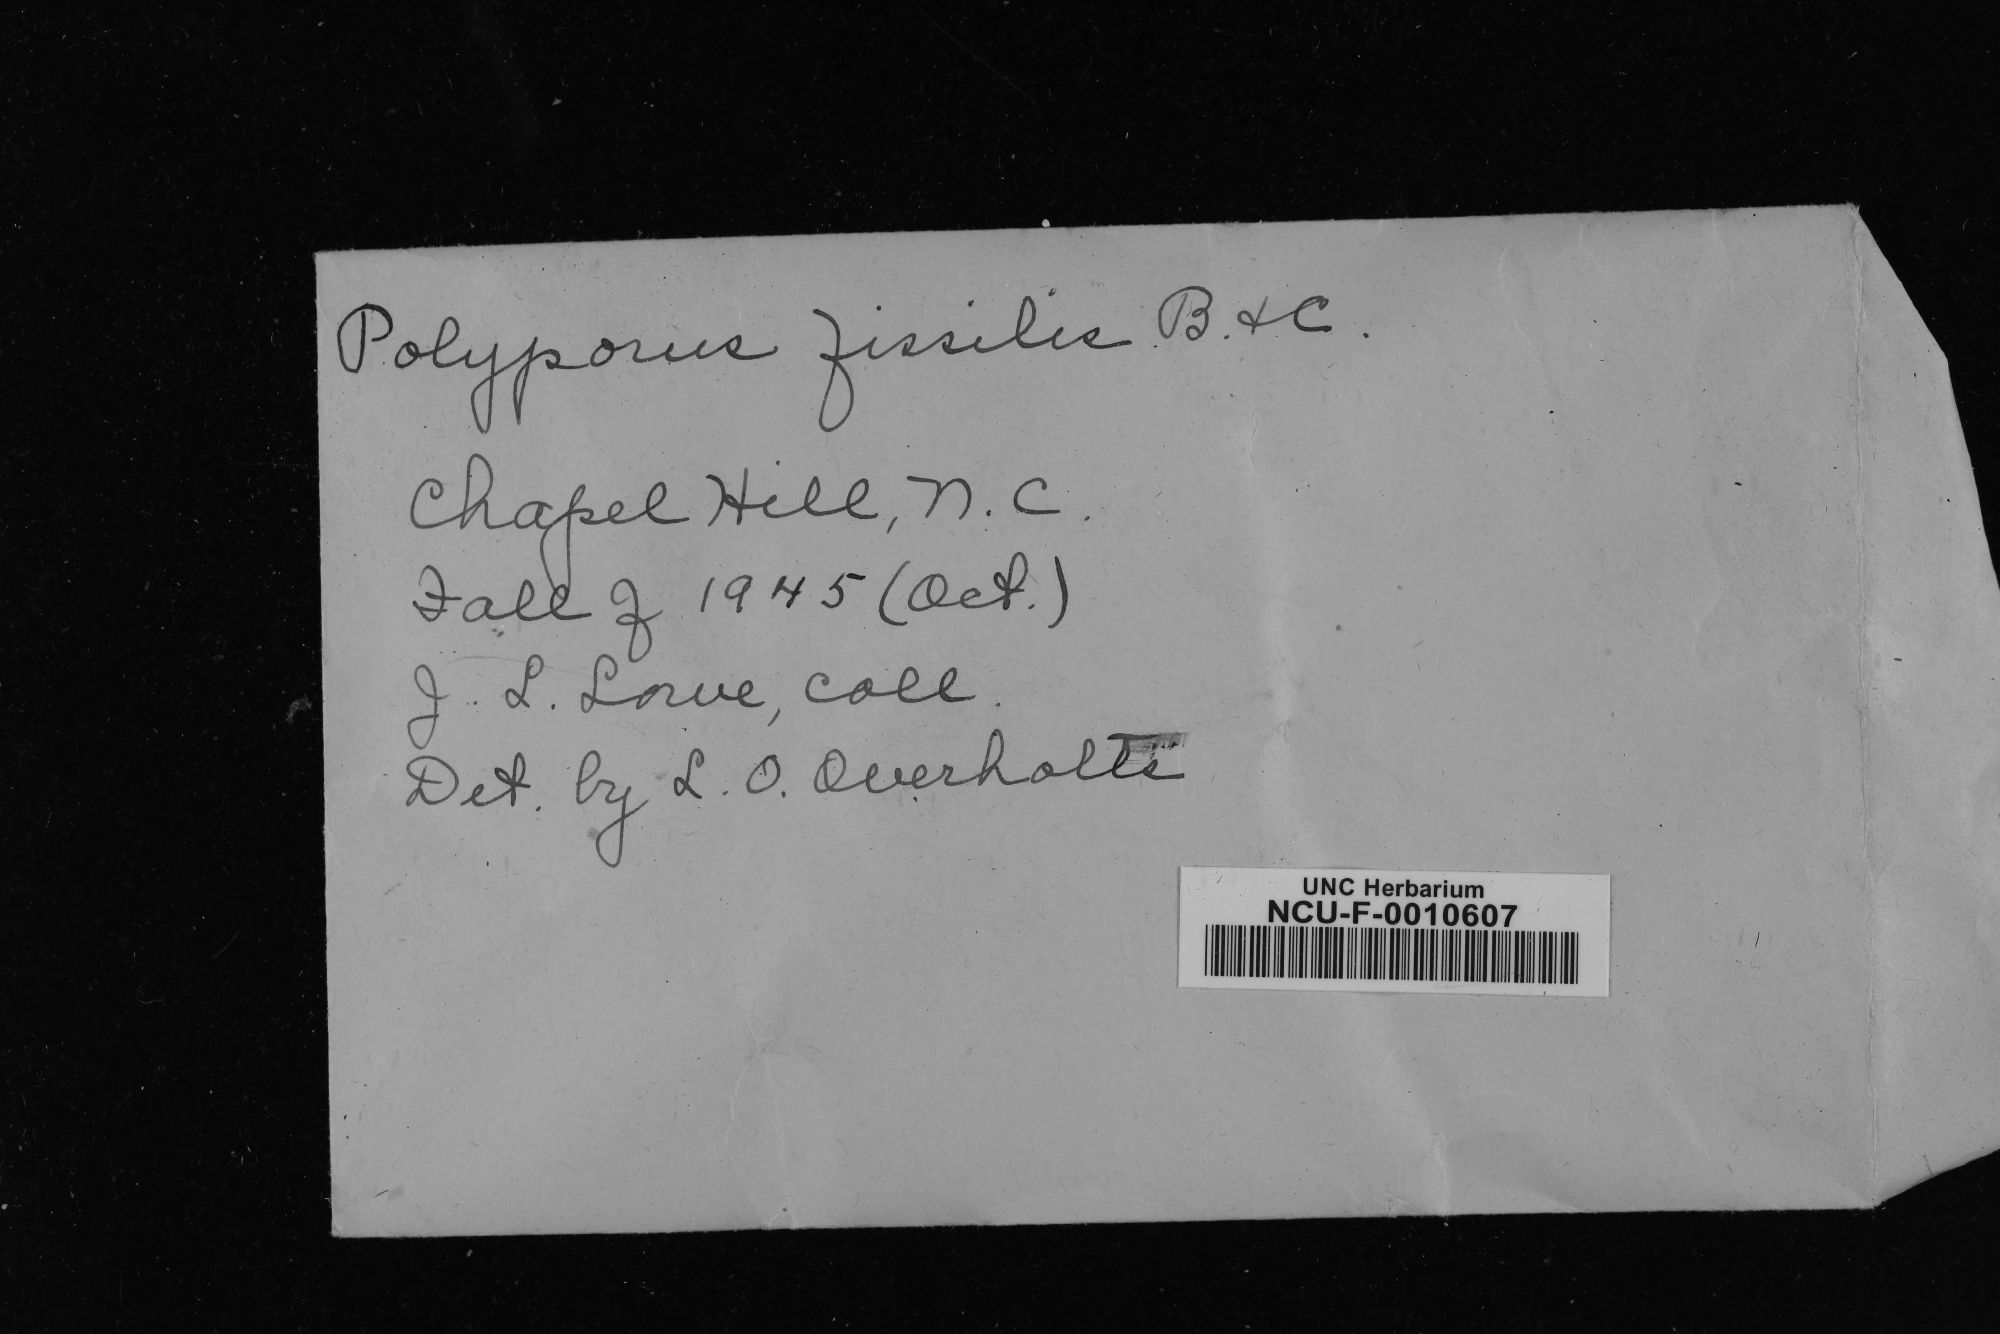 Polyporus fissilis B. & C.
Chapel Hill, N. C.
Fall of 1945 (Oct.)
J. L. Lowe, coll.
Det. by L. O. Overholts
UNC Herbarium
NCU-F-0010607